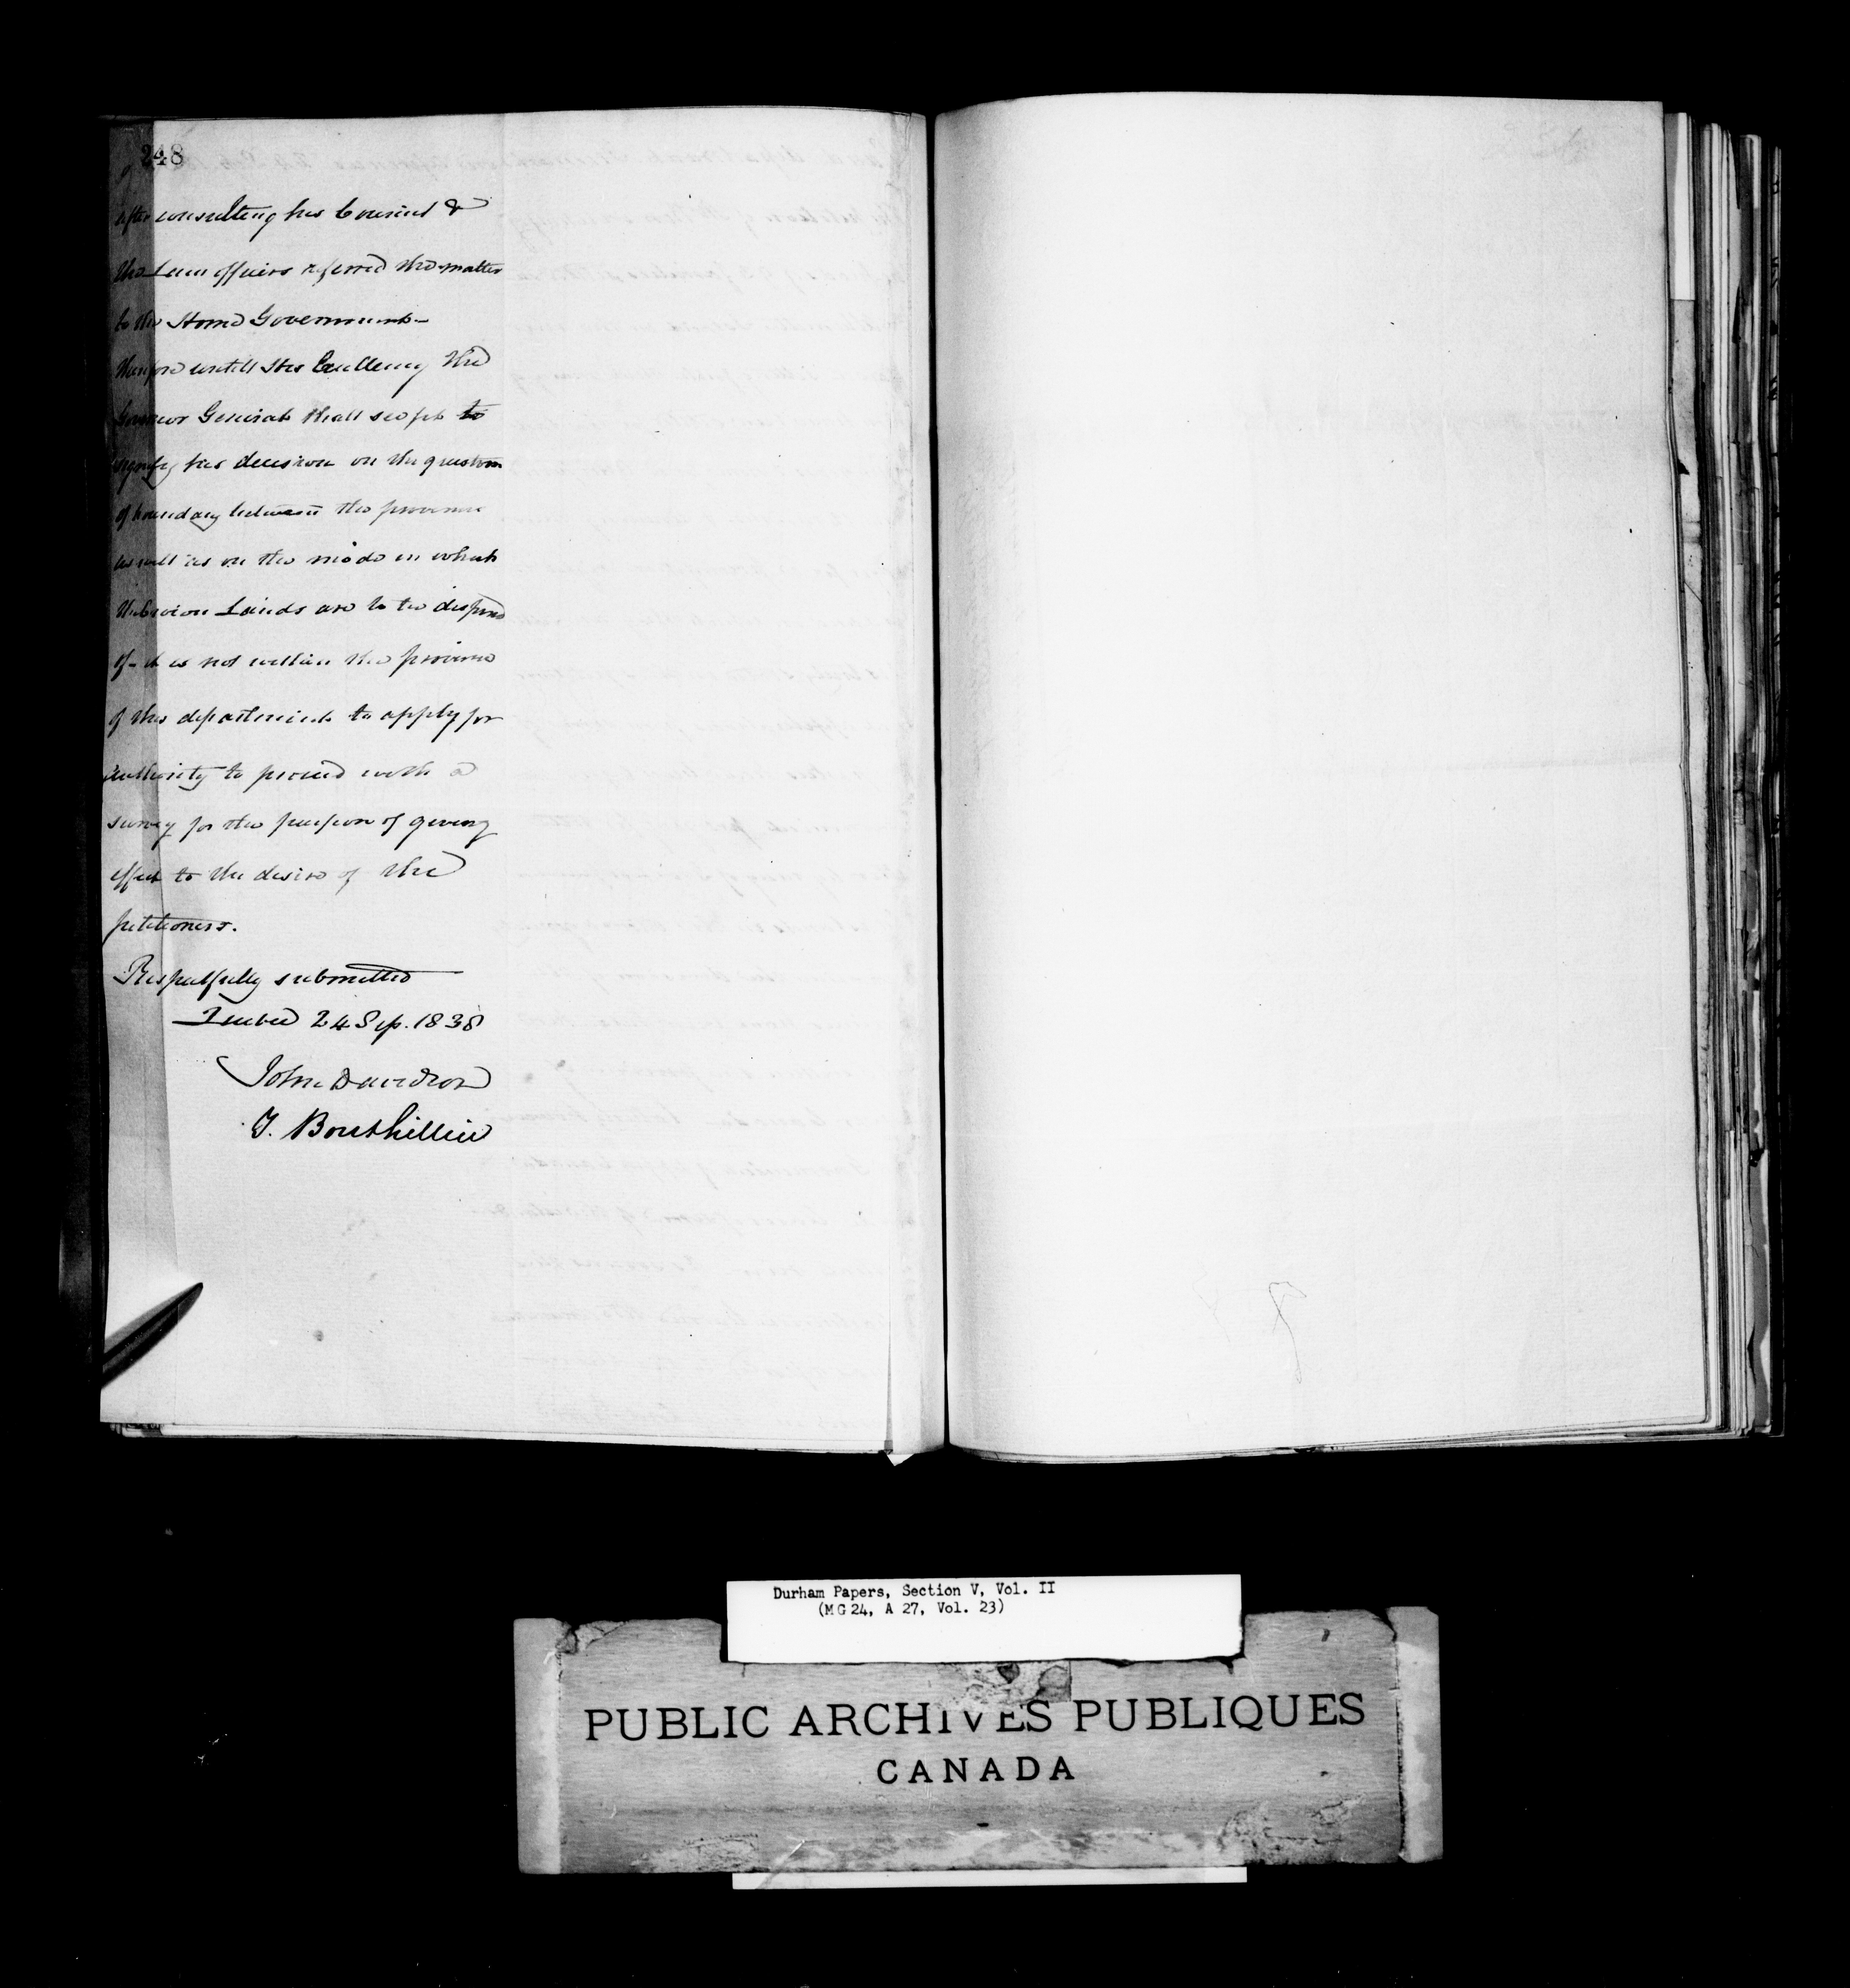 248
after consulting his Council &
the Law officers referred the matter
to the Home Government –
therefore untill His Excellency the
Governor General shall see fit to
signify his decision on the question
of boundary between the provinces
as well as on the mode in which
the Crown Lands are to be disposed
of – it is not within the province
of this department to apply for
authority to proceed with a
survey for the purpose of giving
effect to the desire of the
petitioners.
Respectfully submitted
Quebec 24 Sep. 1838
John Davidson
T. Bouthillier
Durham Papers, Section V, Vol. II
(MG 24, A 27, Vol. 23)
PUBLIC ARCHIVES PUBLIQUES
CANADA